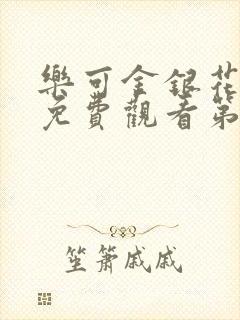 樂可金銀花
免費觀看第
笙簫戚戚